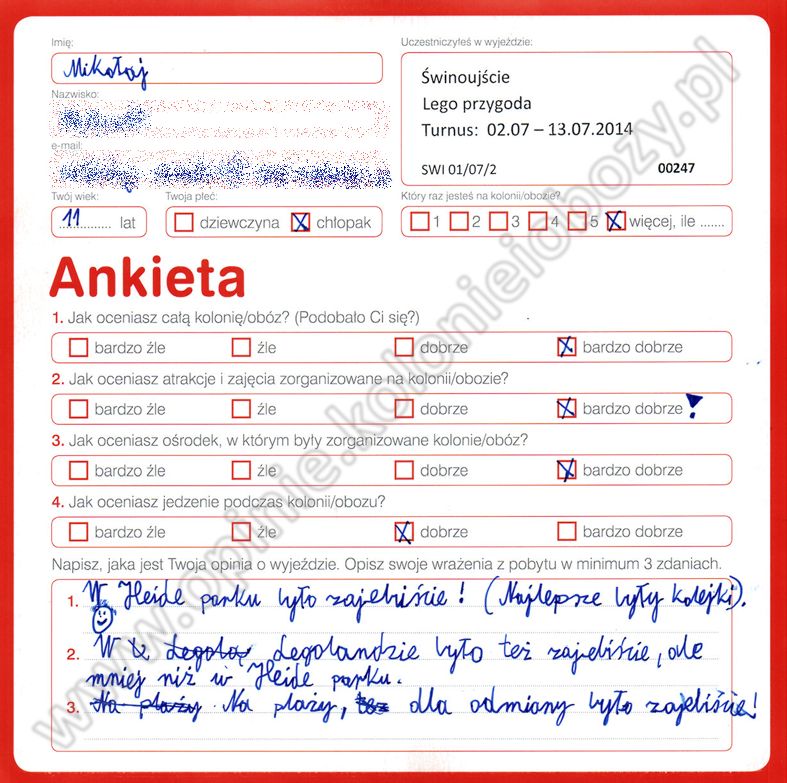 Imię:
Mikołaj
Nazwisko:
e-mail:
Twój wiek:
11 lat
Twoja płeć:
dziewczyna chłopak
Uczestniczyłeś w wyjeździe:
Świnoujście
Lego przygoda
Turnus: 02.07 – 13.07.2014
SWI 01/07/2 00247
Który raz jesteś na kolonii/obozie?
1 2 3 4 5 więcej, ile .......
Ankieta
1. Jak oceniasz całą kolonię/obóz? (Podobało Ci się?)
bardzo źle źle dobrze bardzo dobrze
2. Jak oceniasz atrakcje i zajęcia zorganizowane na kolonii/obozie?
bardzo źle źle dobrze bardzo dobrze !
3. Jak oceniasz ośrodek, w którym były zorganizowane kolonie/obóz?
bardzo źle źle dobrze bardzo dobrze
4. Jak oceniasz jedzenie podczas kolonii/obozu?
bardzo źle źle dobrze bardzo dobrze
Napisz, jaka jest Twoja opinia o wyjeździe. Opisz swoje wrażenia z pobytu w minimum 3 zdaniach.
1. W Heide parku było zajebiście! (Najlepsze były kolejki).
2. W Legolandzie było też zajebiście, ale
mniej niż w Heide parku.
3. Na plaży Na plaży, dla odmiany było zajebiście!
www.opinie.kolonieiobozy.pl